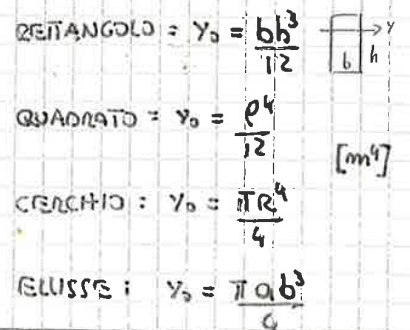 RETTANGOLO : Y₀ = bh³/12
y
b h
QUADRATO : Y₀ = ℓ⁴/12
[m⁴]
CERCHIO : Y₀ = πR⁴/4
ELLISSE : Y₀ = πab³